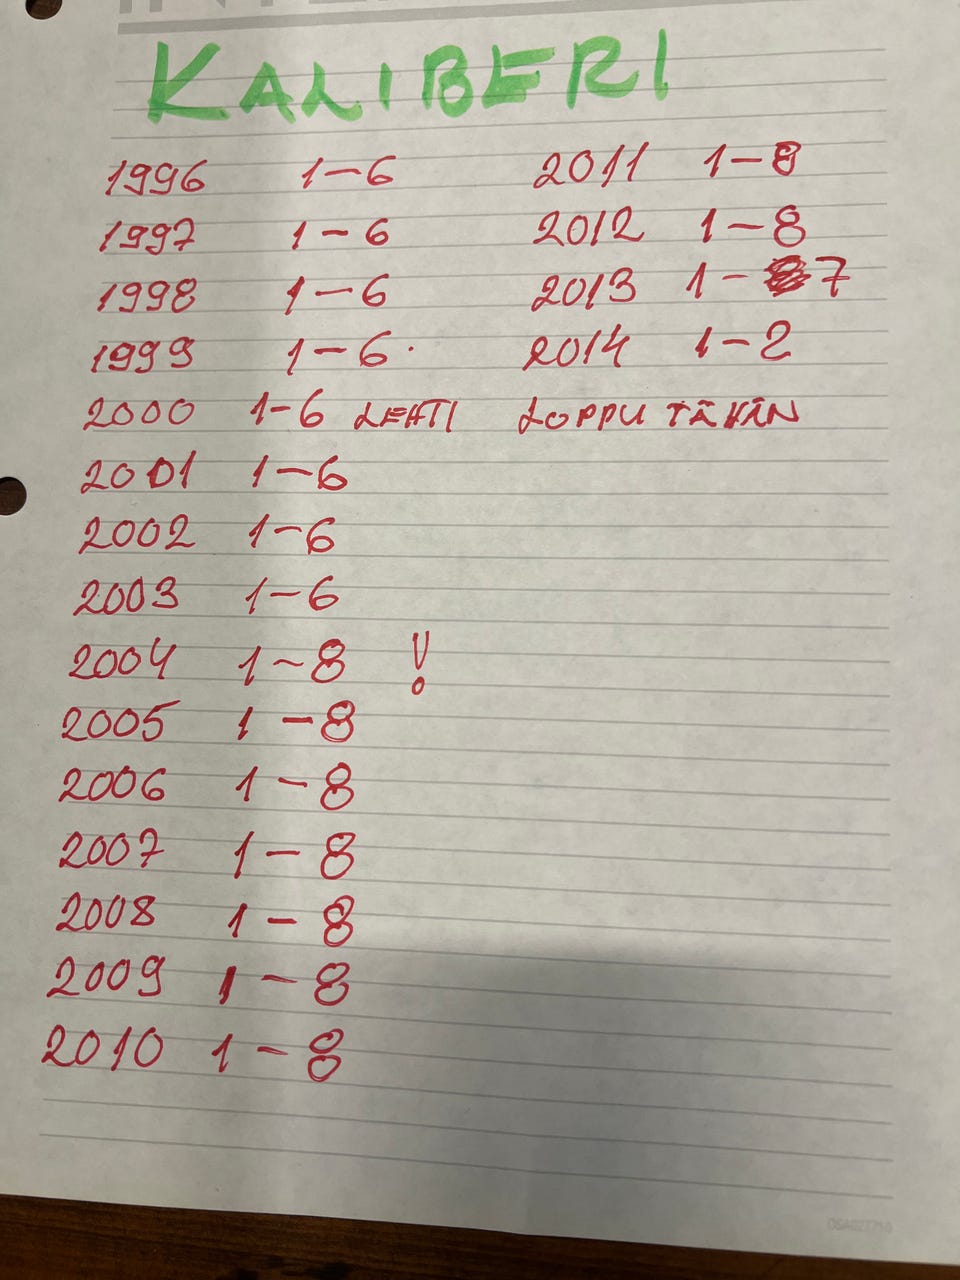 KALIBERI
1996 1-6
1997 1-6
1998 1-6
1999 1-6.
2000 1-6
2001 1-6
2002 1-6
2003 1-6
2004 1-8 !
2005 1-8
2006 1-8
2007 1-8
2008 1-8
2009 1-8
2010 1-8
2011 1-8
2012 1-8
2013 1-7
2014 1-2
LEHTI LOPPU TÄHÄN